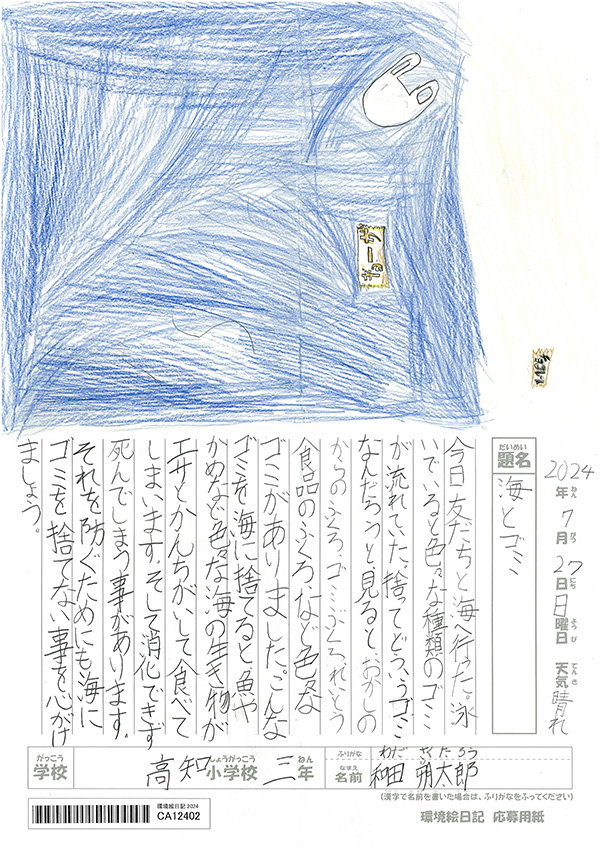 2024年ねん7月がつ27日にち日曜日ようび 天気てんき晴れ
だいめい
題名
海とゴミ
今日友だちと海へ行った。泳
いでいると色々な種類のゴミ
が流れていた。捨ってどういうゴミ
なんだろうと見ると、おかしの
からのふくろ、ゴミぶくろれいとう
食品のふくろ、など色々な
ゴミがありました。こんな
ゴミを海に捨てると魚や
かめなど色々な海の生き物が
エサとかんちがいして食べて
しまいます。そして消化できず
死んでしまう事があります。
それを防ぐためにも海に
ゴミを捨てない事を心がけ
ましょう。
がっこう
学校
高知小学校しょうがっこう 三年ねん
ふりがな
わだ さくたろう
なまえ
名前
和田 朔太郎
(漢字で名前を書いた場合は、ふりがなをふってください)
環境絵日記 2024
CA12402
環境絵日記 応募用紙